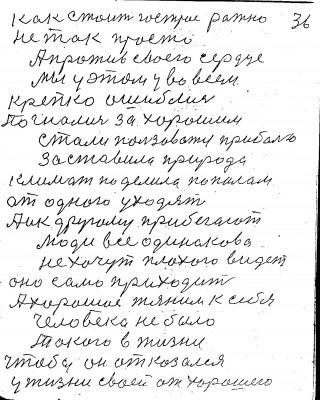 36
как стоит гострое ратно
не так просто
А против своего сердце
мы у этом у во всем
крепко ошиблич
Погналич за хорошим
стали ползовати прибалю
заставила природа
климат поделила попалам
от одного уходят
А ик другому прибегают
моди все одинакова
не хочут плохого видет
оно само приходит
А хорошое тяним к себя
Человека не было
такого в жизни
чтобы он отказался
у жизни своей от хорошего